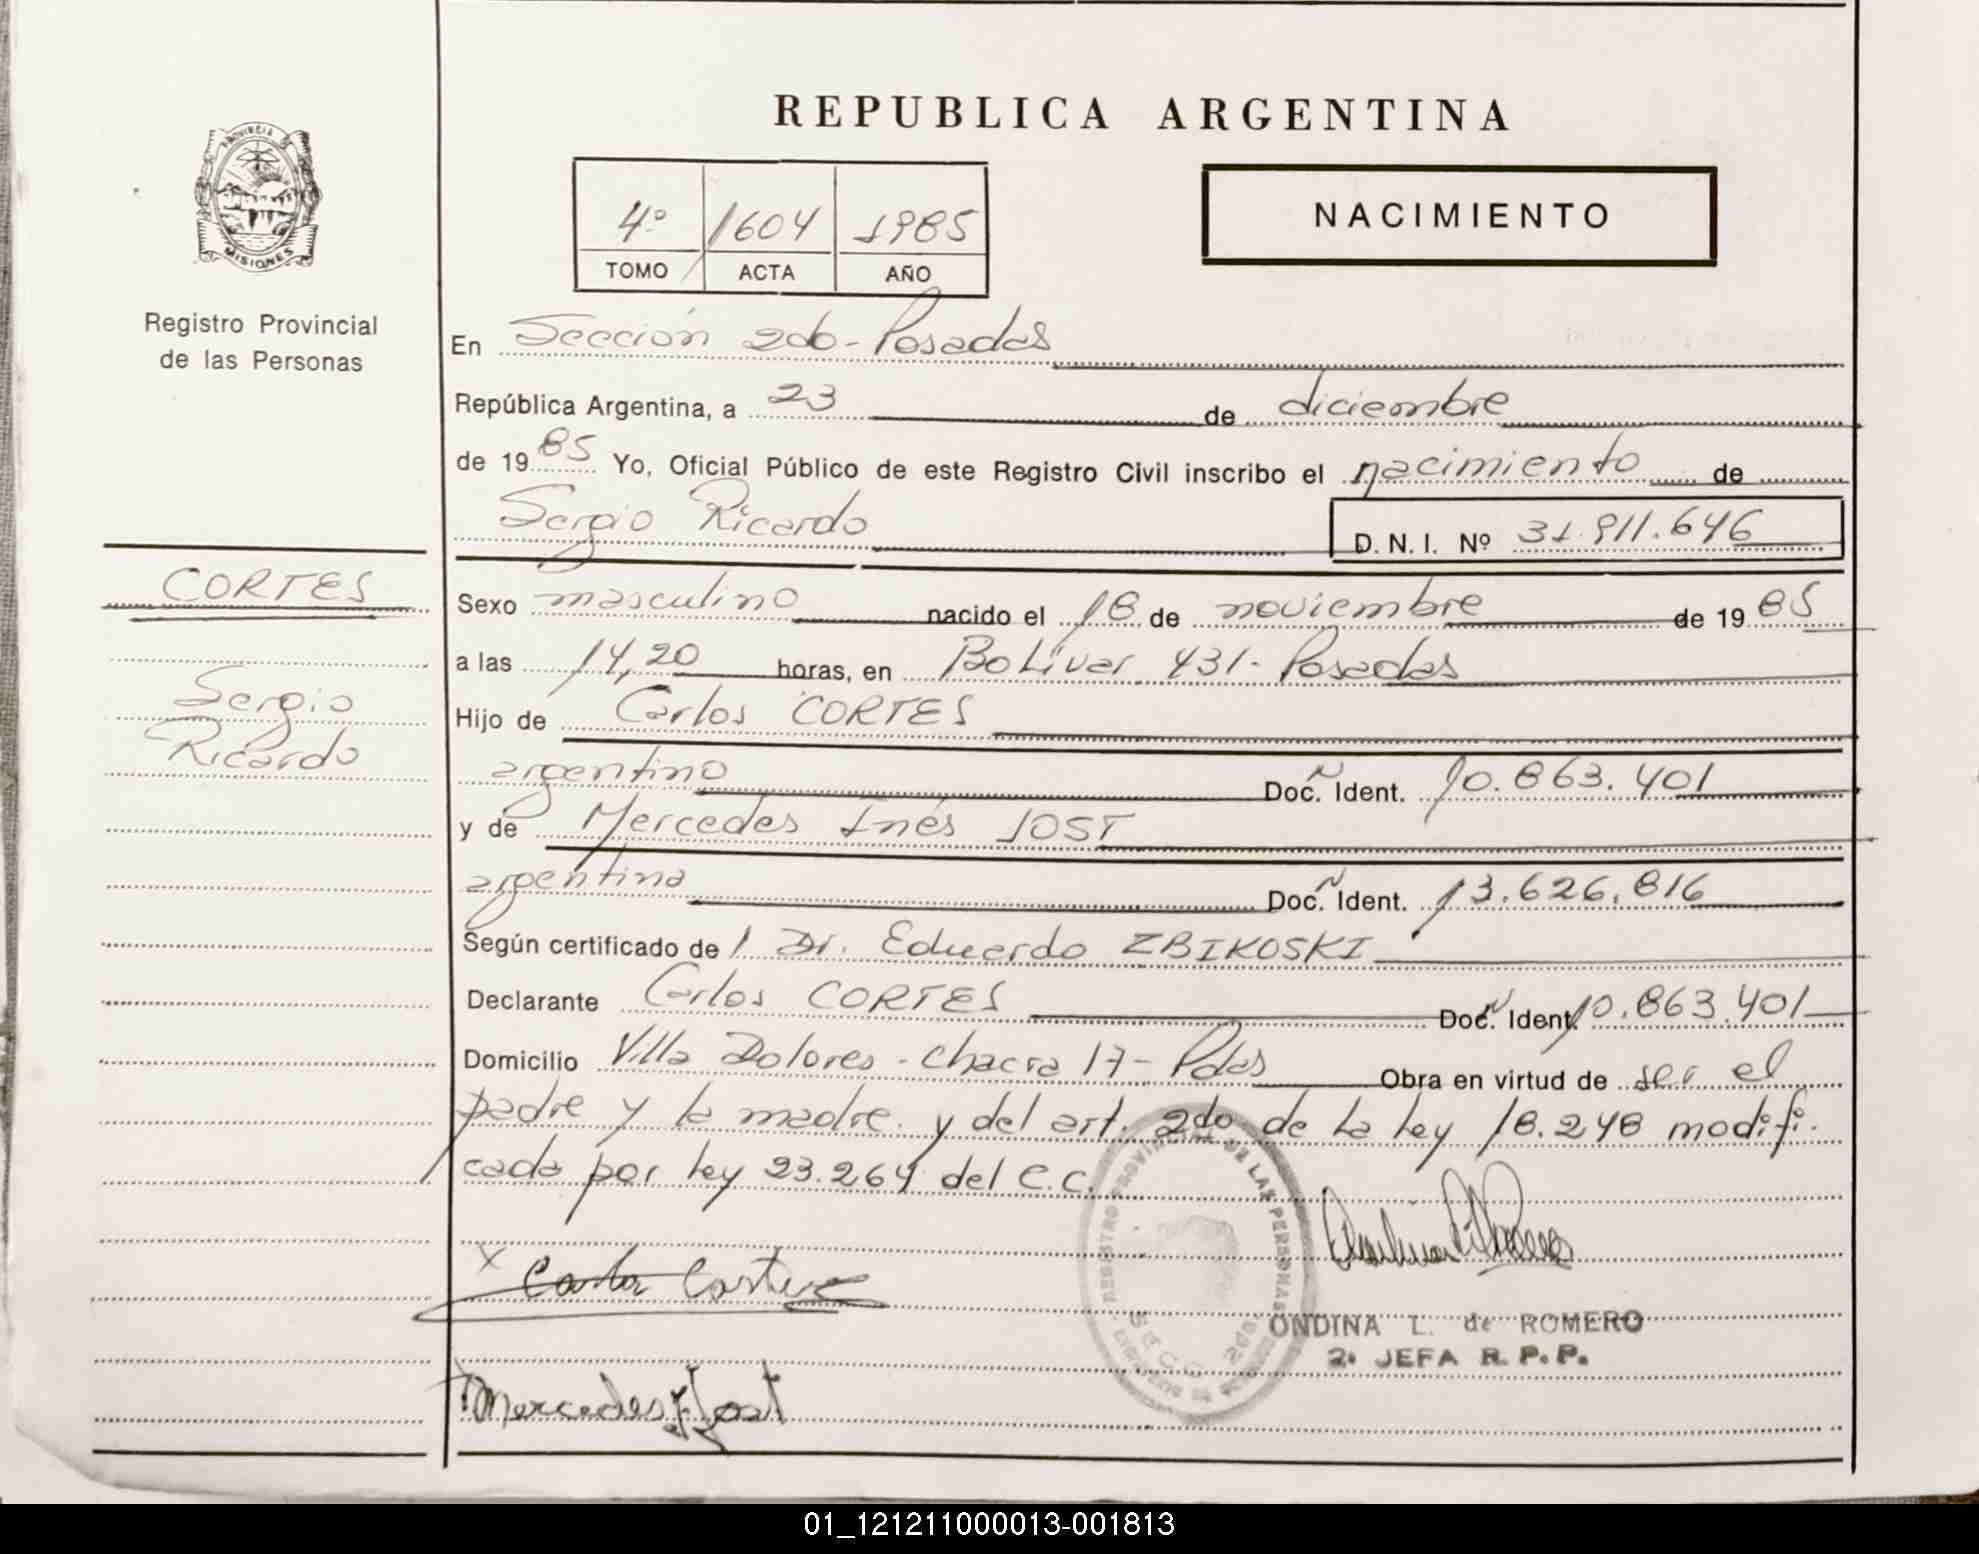 REPUBLICA ARGENTINA
PROVINCIA DE
MISIONES
Registro Provincial
de las Personas
4º 1604 1985
TOMO ACTA AÑO
NACIMIENTO
En Sección 2da - Posadas
República Argentina, a 23 de diciembre
de 1985 Yo, Oficial Público de este Registro Civil inscribo el nacimiento de
Sergio Ricardo D. N. I. Nº 31.911.646
CORTES
Sergio
Ricardo
Sexo masculino nacido el 18 de noviembre de 1985
a las 14,20 horas, en Bolívar 431 - Posadas
Hijo de Carlos CORTES
argentino Doc. Ident. 10.863.401
y de Mercedes Inés JOST
argentina Doc. Ident. 13.626.816
Según certificado de Dr. Eduardo ZBIKOSKI
Declarante Carlos CORTES Doc. Ident. 10.863.401
Domicilio Villa Dolores - Chacra 17 - Pdas Obra en virtud de ser el
padre y la madre y del art. 2do de la ley 18.248 modifi-
cada por ley 23.264 del C.C.
REGISTRO PROVINCIAL DE LAS PERSONAS
SECC 2da
x Carlos Cortes
ONDINA L. de ROMERO
2ª JEFA R. P. P.
Mercedes I Jost
01_121211000013-001813